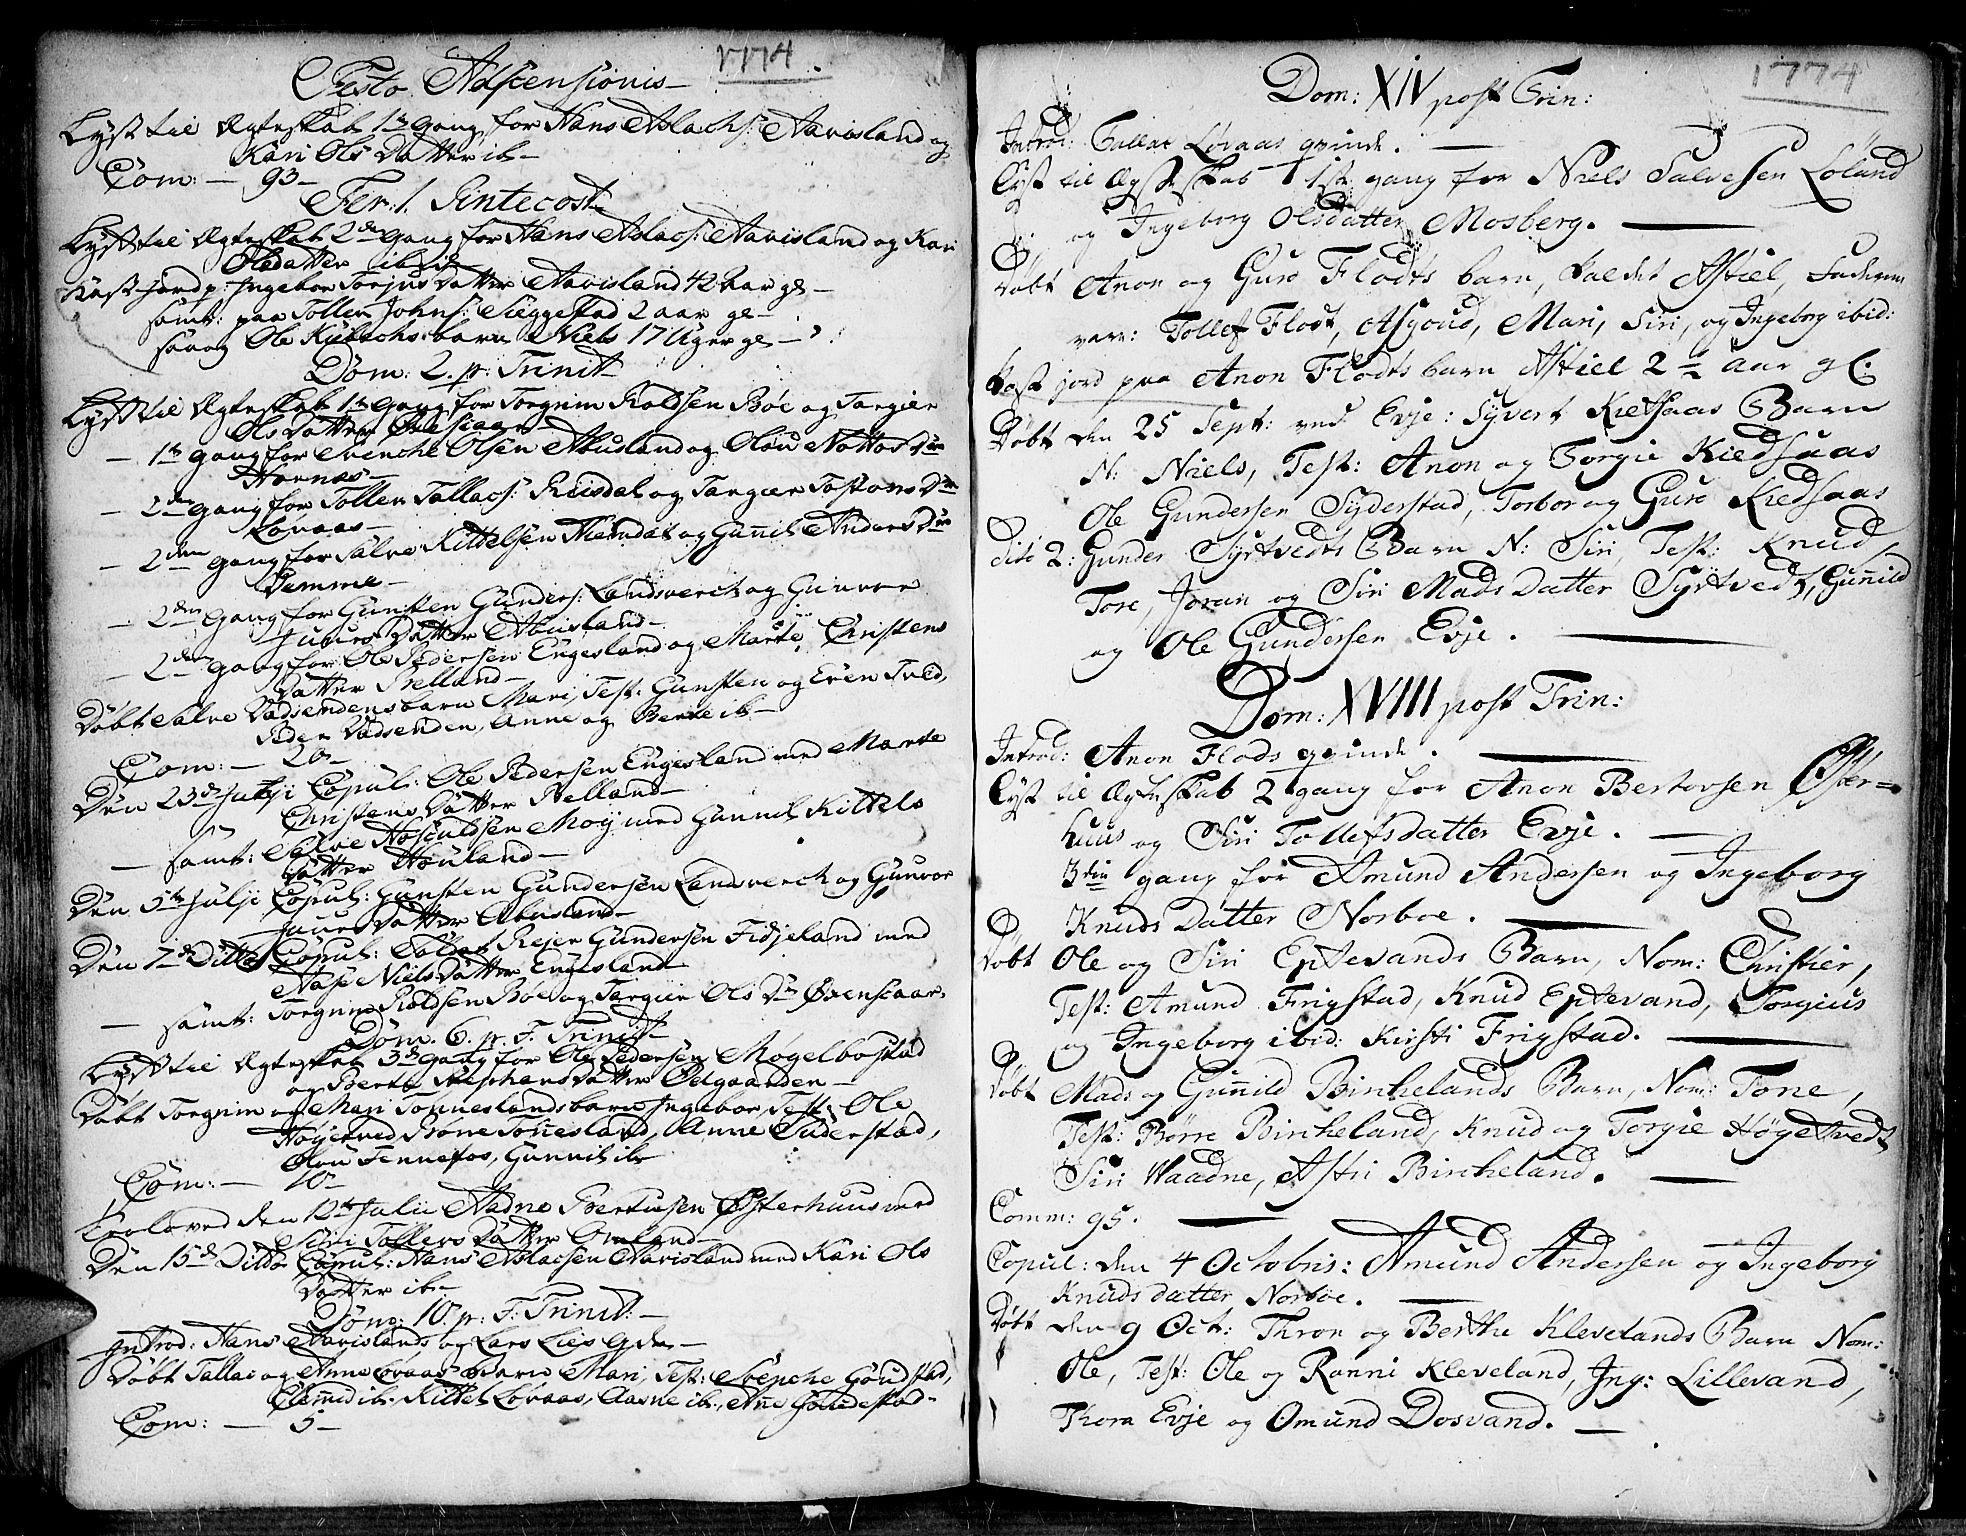 1774
Festo Adscensionis
Lyst til Ægteskab 1ste Gang for Hans Aslachs: Aavisland og
Kari Ols Datter ib:
Com: — 93 —
Fer: 1. Pintecost
Lyst til Ægteskab 2den Gang for Hans Aslacs: Aavisland og Kari
Olsdatter ibid
Kast Jord p: Ingebor Torjus Datter Aavisland 42 Aar gl —
samt: paa Tollef Johns: Sieggestad 2 aar gl —
saa og Ole Kubschs barn Niels 17 Uger gl —
Dom: 2. p: Trinit
Lyst til Ægteskab 1ste Gang for Torgrim Roldsen Böe og Targier
Ols Datter Øvensaar
— 1ste Gang for Svenche Olsen Abusland og Olou Nottos Dtr
Hornæs —
— 2den Gang for Tollef Tallacs: Reisdal og Targier Tostens Dtr
Lovaas —
— 2den Gang for Salve Kittelsen og Gunnil Anders Dtr
Vemme —
— 2den Gang for Gunsten Gunders: Landsverch og Gunvor
Datter Abusland —
— 2den Gang for Ole Pedersen Engesland og Marte Christens
Datter Relland —
Døbt Salve Vadsendens barn Mari, Test: Gunsten og Even Tved,
Peder Vadsenden, Anne og Berte ib —
Com: — 20 —
Den 23de Copul: Ole Pedersen Engesland med Marte
Christens Datter Relland —
— samt: Salve Moy med Gunnil Kittels
Datter Houland —
Den 5te Julji Copul: Gunsten Gundersen Landsverch og Gunvor
Datter Abusland —
Den 7de Ditto Copul: Rejer Gundersen Fidjeland med
Aase Niels Datter Engesland
— samt: Torgrim Roldsen Böe og Targier Ols Dtr Øvensaar.
Dom. 6. p. F. Trinit —
Lyst til Ægteskab 3de Gang for Ole Pedersen Møgelbostad
og Berte Stephens Datter Ødegaarden —
Døbt Torgrim og Mari Tonneslands barn Ingebor, Test: Ole
Høgetved, Rone Tonnesland, Anne Suderstad,
Olou Fennefos, Gunnil ib
Com: — 10 —
Troloved den 12te Julii Aadne Bertusen Østerhuus med
Siri Tollefs Datter Omland —
Den 15de Ditto Copul: Hans Aslacsen Aavisland med Kari Ols
Datter ib —
Dom: 10. p: F: Trinit: —
Introd: Hans Aavislands og Lars Lies Qder —
Døbt Tallac og Anne Lovaas barn Mari, Test: Svenche Goudstad,
ib. Kittel Lovaas, Aasne ib, Anne Goudestad.
Com: — 5 —
1774
Dom: XIV post Trin:
Introd: Tallac Løvaas qvinde. —
Lyst til Ægteskab 1ste gang for Niels Salvesen Løland
og Ingeborg Olsdatter Mosberg. —
Døbt Anon og Guro Flodts barn, kaldet Askiel, Faderne
vare: Tollef Flodt, Asgoud, Mari, Siri, og Ingeborg ibid:
Kast jord paa Anon Flodts barn Askiel 2 1/2 aar gl:
Døbt den 25 Sept: ved Evje: Syvert Kietsaas Barn
N: Niels, Test: Anon og Torgie Kiedsaas
Ole Gundersen Syderstad, Torbor og Guro Kiedsaas
dito 2: Gunder Syrtvedts Barn N: Siri, Test: Knud,
Tore, Joran og Siri Mads Datter Syrtvedt, Gunnild
og Ole Gundersen Evje. —
Dom: XVIII post Trin:
Introd: Anon Flods qvinde. —
Lyst til Ægteskab 2 gang for Anon Bertovsen Øster=
huus og Siri Tollefsdatter Evje. —
3die gang for Amund Andersen og Ingeborg
Knuds Datter Norboe. —
Døbt Ole og Siri Eptevands Barn, Nom: Christier,
Test: Amund Frigstad, Knud Eptevand, Torgius
og Ingeborg ibid: Kirsti Frigstad. —
Døbt Mads og Gunnild Birchelands Barn, Nom: Tone,
Test: Børre Bircheland, Knud og Torgie Høgetvedt
Siri Waadne, Astri Bircheland. —
Comm: 95. —
Copul: den 4 Octobris: Amund Andersen og Ingeborg
Knuds datter Norboe. —
Døbt den 9 Oct: Thron og Berthe Klevelands Barn Nom:
Ole, Test: Ole og Ronni Kleveland, Ing: Lillevand,
Thora Evje og Omund Dosvand. —